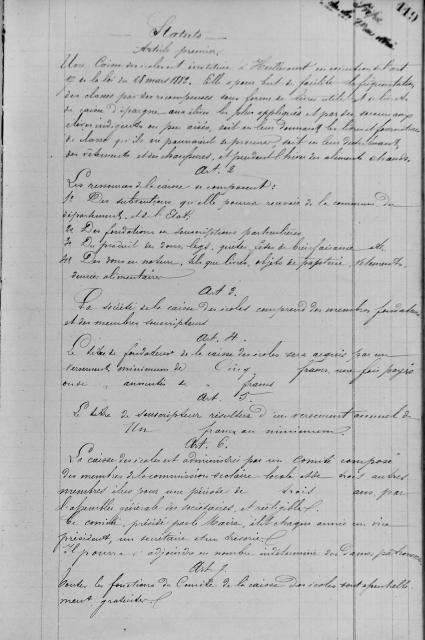 119
Statuts
Article premier
Une Caisse des écoles est instituée à en exécution de l'art
17 de la loi du 28 mars 1882. Elle a pour but de faciliter la fréquentation
des classes par des récompenses sous forme de livres utiles et de livrets
de caisse d'épargne aux élèves les plus appliqués et par des secours aux
élèves indigents ou peu aisés, soit en leur donnant les livres et fournitures
de classe qu'ils ne pourraient se procurer, soit en leur distribuant
des vêtements et des chaussures, et pendant l'hiver des aliments chauds.
Art. 2
Les ressources de la caisse se composent:
1º Des subventions qu'elle pourra recevoir de la commune du
département et de l'Etat.
2º Des fondations ou souscriptions particulières
3º Du produit de dons, legs, quêtes, fêtes de bienfaisance etc
4º Des dons en nature, tels que livres, objets de papeterie, vêtements
denrées alimentaires
Art 3.
La société de la caisse des écoles comprend des membres fondateurs
et des membres souscripteurs
Art. 4.
Le titre de fondateur de la caisse des écoles sera acquis par un
versement minimum de Cinq francs une fois payés
ou se annuités de francs
Art. 5
Le titre de souscripteur résultera d'un versement annuel de
Un franc au minimum.
Art. 6.
La caisse des écoles est administrée par un comité composé
des membres de la commission scolaire locale et de trois autres
membres élus pour une période de trois ans, par
l'assemblée générale des sociétaires, et rééligibles.
Ce comité, présidé par le Maire, élit chaque année un vice
président, un secrétaire et un trésorier.
Il pourra s'adjoindre un nombre indéterminé de dames patronnesses
Art. 7
Toutes les fonctions du Comité de la caisse des écoles sont essentielle
ment gratuites.